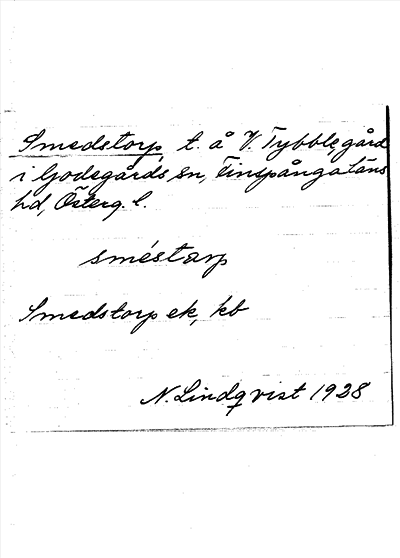 Smedstorp, t. å V. Tybblegård
i Godegårds sn, Finspånga läns
hd, Österg. l.
sméstarp
Smedstorp ek, kb
N. Lindqvist 1928